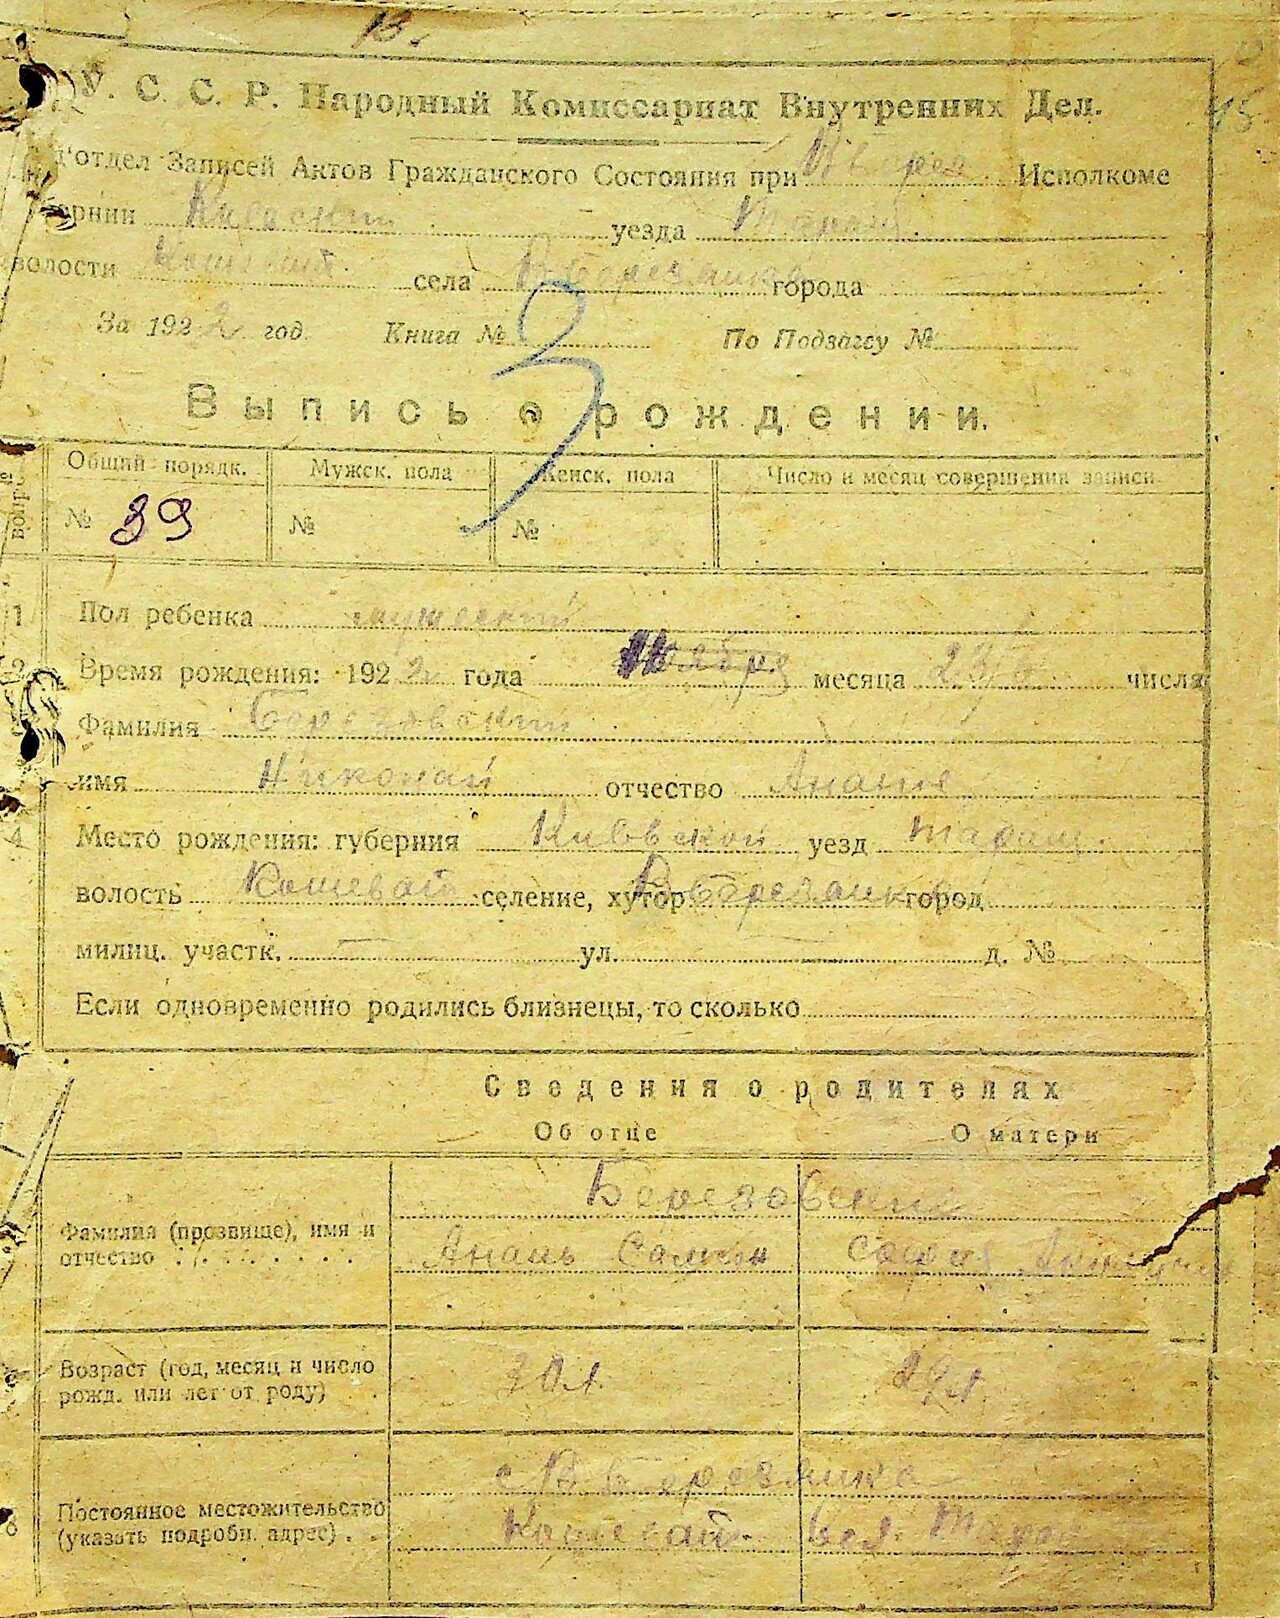 13.
У. С. С. Р. Народный Комиссариат Внутренних Дел.
45
отдел Записей Актов Гражданского Состояния при Исполкоме
ернии Киевский уезда Таращ.
волости Кошеват. села В Березянка города
За 1922 год. Книга № По Подзагсу №
3
Выпись о рождении.
Общий порядк. Мужск. пола Женск. пола Число и месяц совершения записи
№ 39 № №
1 Пол ребенка мужеский
2 Время рождения: 1922 года Ноября месяца 23го числа
Фамилия Березовский
имя Николай отчество Анань
4 Место рождения: губерния Киевской уезд Таращ.
волость Кошеват селение, хутор В Березянка город
милиц. участк. — ул. д. №
Если одновременно родились близнецы, то сколько
Сведения о родителях
Об отце О матери
Березовские
Фамилия (прозвище), имя и
отчество Анань Самсон София
Возраст (год, месяц и число
рожд. или лет от роду) 30 л. 29 л.
с В Березянка
Постоянное местожительство
(указать подробн. адрес) Кошеват. вол. Таращ